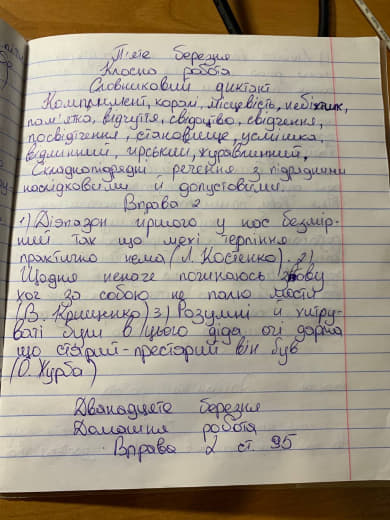 П'яте березня
Класна робота
Словниковий диктант
Комплимент, королі, місцевість, небіжчик,
пам'ятка, відчуття, свідоцтво, свідчення,
посвідчення, становище, усмішка,
відмінний, гірський, журавлинний,
Складнопідрядні речення з підрядними
наслідковими й допустовими.
Вправа 2
1) Діапазон гіршого у нас безмір-
ний так що межі терпіння
практично нема (Л. Костенко). 2)
Щодня неначе починаюсь знову
хоч за собою не палю мости
(В. Крищенко) 3) Розумні й хитру-
ваті були в цього діда очі дарма
що старий-престарий він був
(О. Журба)
Дванадцяте березня
Домашня робота
Вправа 2 ст. 95